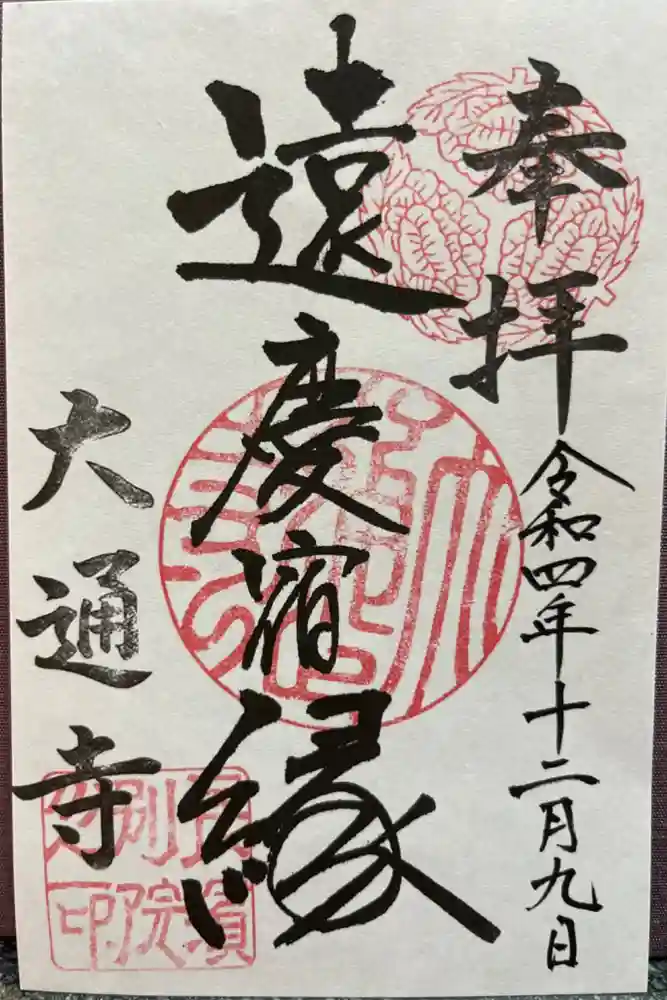 奉拝
令和四年十二月九日
遠慶宿縁
大通寺
長濱
別院
印